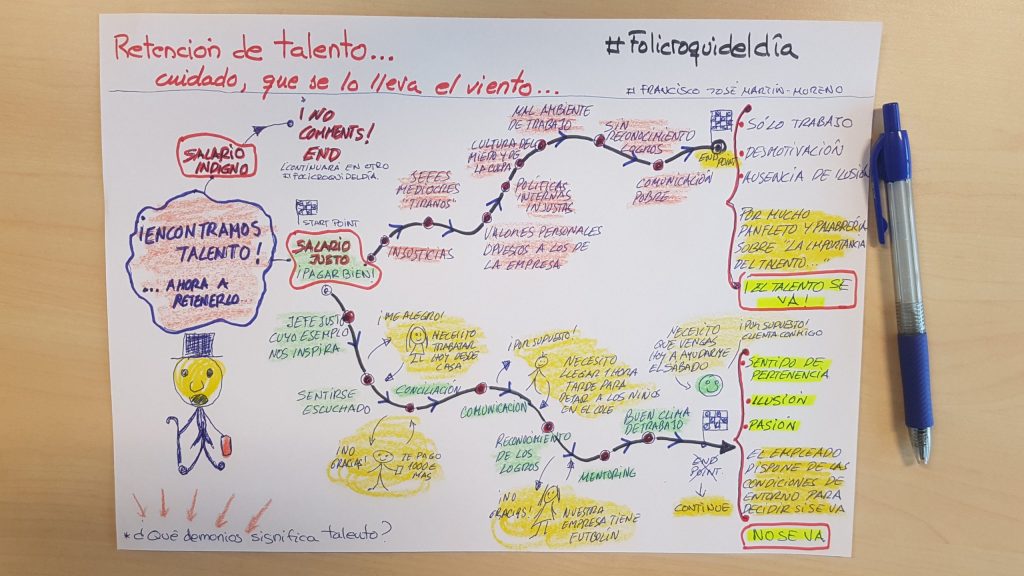 Retención de talento...
cuidado, que se lo lleva el viento...
#Folicroquideldía
# FRANCISCO JOSÉ MARTÍN-MORENO
¡NO
COMMENTS!
END
(CONTINUARÁ EN OTRO
#FOLICROQUIDELDÍA.
SALARIO
INDIGNO
¡ENCONTRAMOS
TALENTO!
... AHORA A
RETENERLO
START POINT
SALARIO
JUSTO
¡PAGAR BIEN!
INJUSTICIAS
JEFES
MEDIOCRES
"TIRANOS"
VALORES PERSONALES
OPUESTOS A LOS DE
LA EMPRESA
CULTURA DEL
MIEDO Y DE
LA CULPA
POLÍTICAS
INTERNAS
INJUSTAS
MAL AMBIENTE
DE TRABAJO
SIN
RECONOCIMIENTO
LOGROS
COMUNICACIÓN
POBRE
END
POINT
SÓLO TRABAJO
DESMOTIVACIÓN
AUSENCIA DE ILUSIÓN
POR MUCHO
PANFLETO Y PALABRERÍA
SOBRE "LA IMPORTANCIA
DEL TALENTO..."
¡EL TALENTO SE
VA!
JEFE JUSTO
CUYO EJEMPLO
NOS INSPIRA
SENTIRSE
ESCUCHADO
¡ME ALEGRO!
NECESITO
TRABAJAR
HOY DESDE
CASA
CONCILIACIÓN
¡NO
GRACIAS!
TE PAGO
1000€
MÁS
COMUNICACIÓN
¡POR SUPUESTO!
NECESITO
LLEGAR 1 HORA
TARDE PARA
DEJAR A LOS NIÑOS
EN EL COLE
RECONOCIMIENTO
DE LOS
LOGROS
¡NO
GRACIAS!
NUESTRA
EMPRESA TIENE
FUTBOLÍN
MENTORING
BUEN CLIMA
DE TRABAJO
NECESITO
QUE VENGAS
HOY A AYUDARME
EL SÁBADO
¡POR SUPUESTO!
CUENTA CONMIGO
END
POINT
CONTINUE
SENTIDO DE
PERTENENCIA
ILUSIÓN
PASIÓN
EL EMPLEADO
DISPONE DE LAS
CONDICIONES DE
ENTORNO PARA
DECIDIR SI SE VA
NO SE VA
* ¿Qué demonios significa talento?